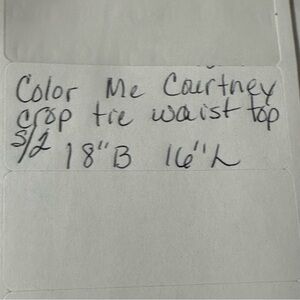 Color Me Courtney
crop tie waist top
S/2 18"B 16"L